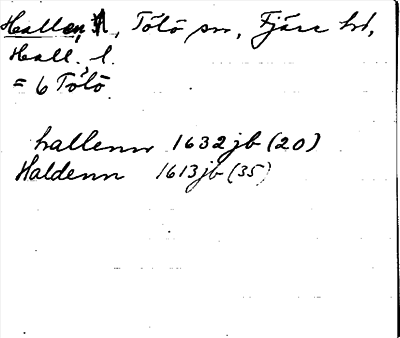 Hallen, , Tölö sn, Fjäre hd,
Hall. l.
= 6 Tölö
hallenn 1632 jb (20)
Haldenn 1613 jb (35)